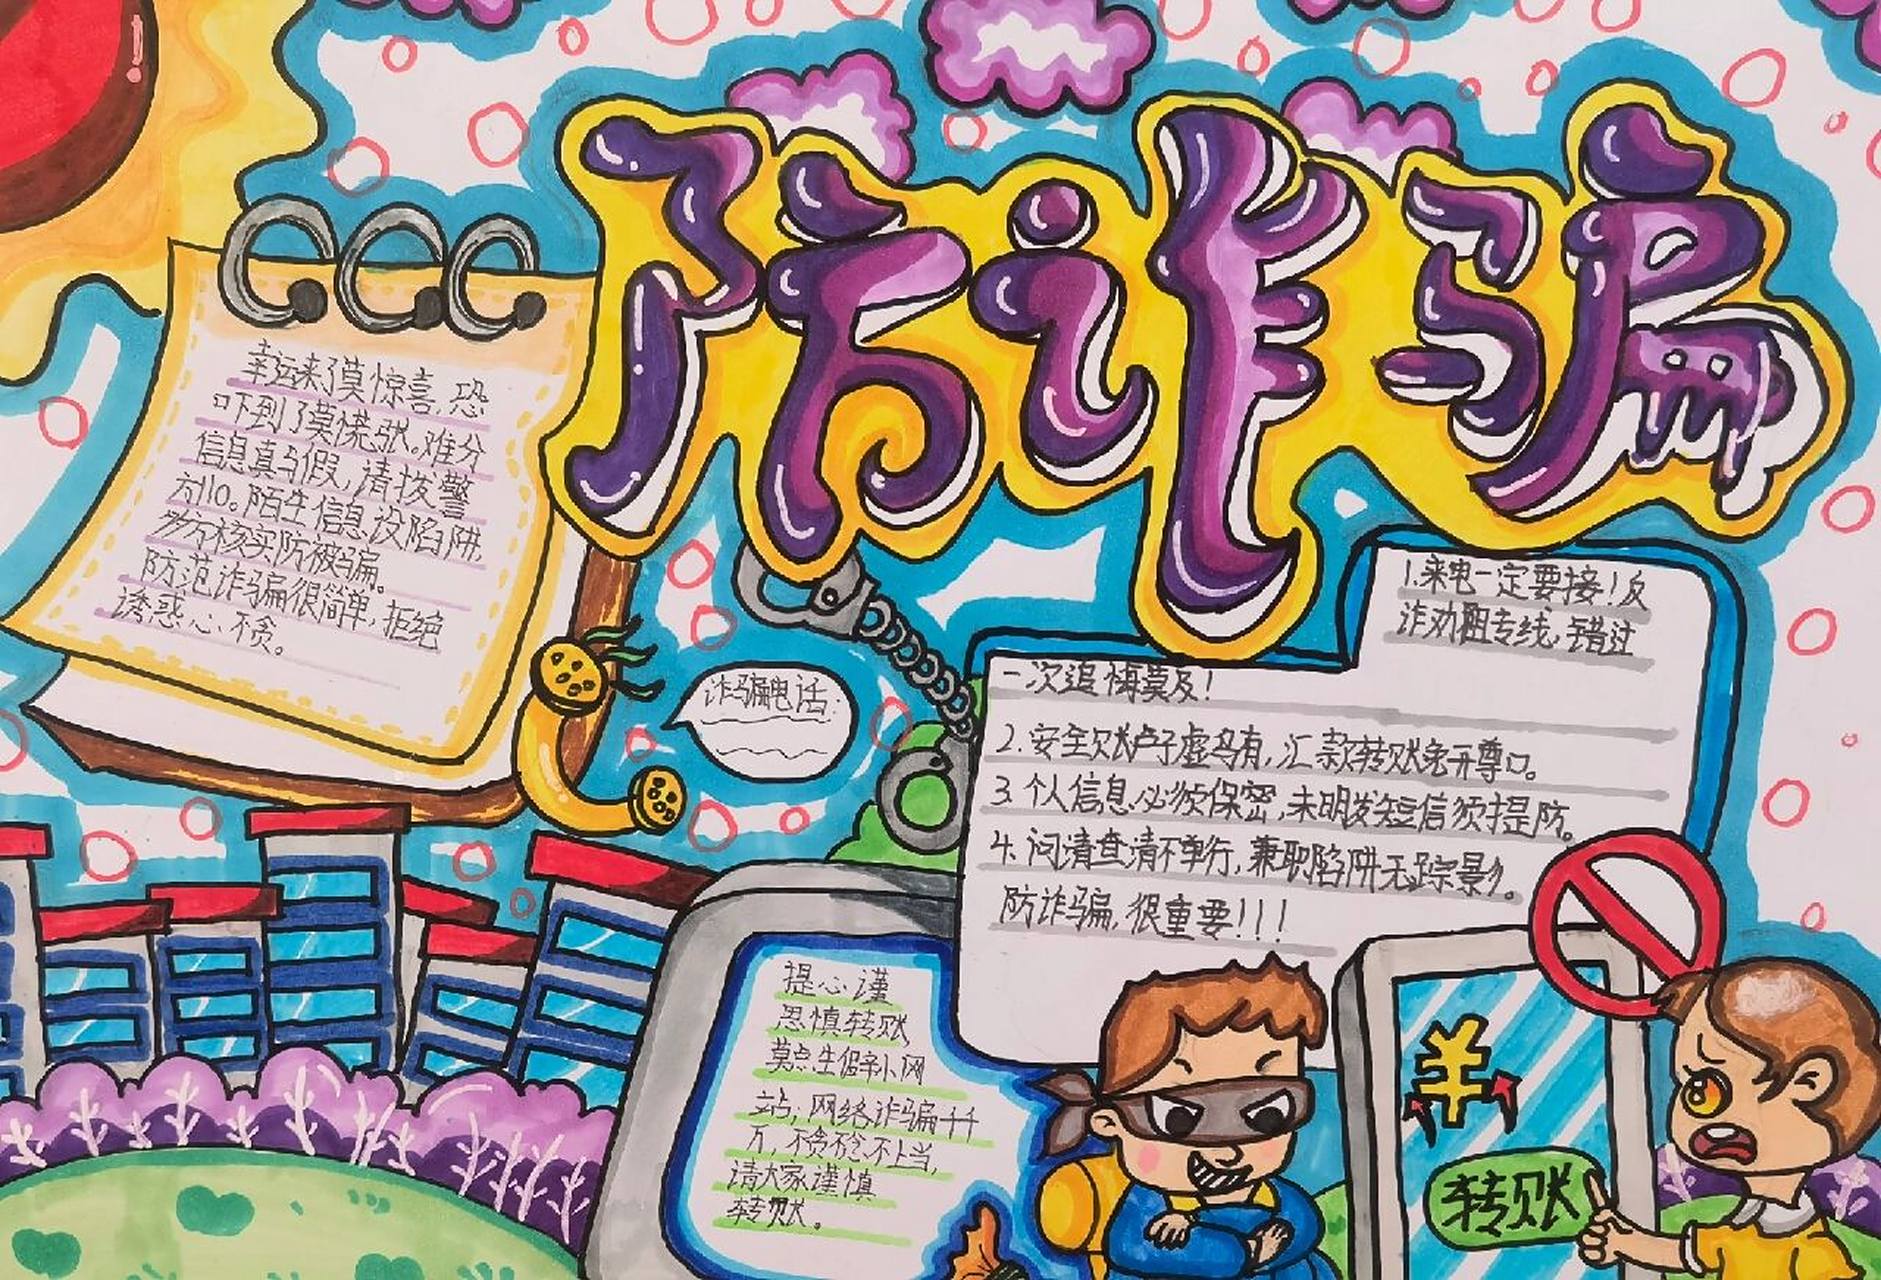 防诈骗
幸运来了莫惊喜,恐
吓到了莫慌张。难分
信息真与假,请拨警
方110。陌生信息设陷阱,
多方核实防被骗。
防范诈骗很简单,拒绝
诱惑心不贪。
诈骗电话:
1.来电一定要接!反
诈劝阻专线,错过
一次追悔莫及!
2.安全账户子虚乌有,汇款转账免开尊口。
3.个人信息必须保密,未明发短信须提防。
4.问清查清不单行,兼职陷阱无踪影。
防诈骗,很重要!!!
提心谨
思慎转账
莫点生僻小网
站,网络诈骗千千
万,不贪不念不上当,
请大家谨慎
转账。
转账